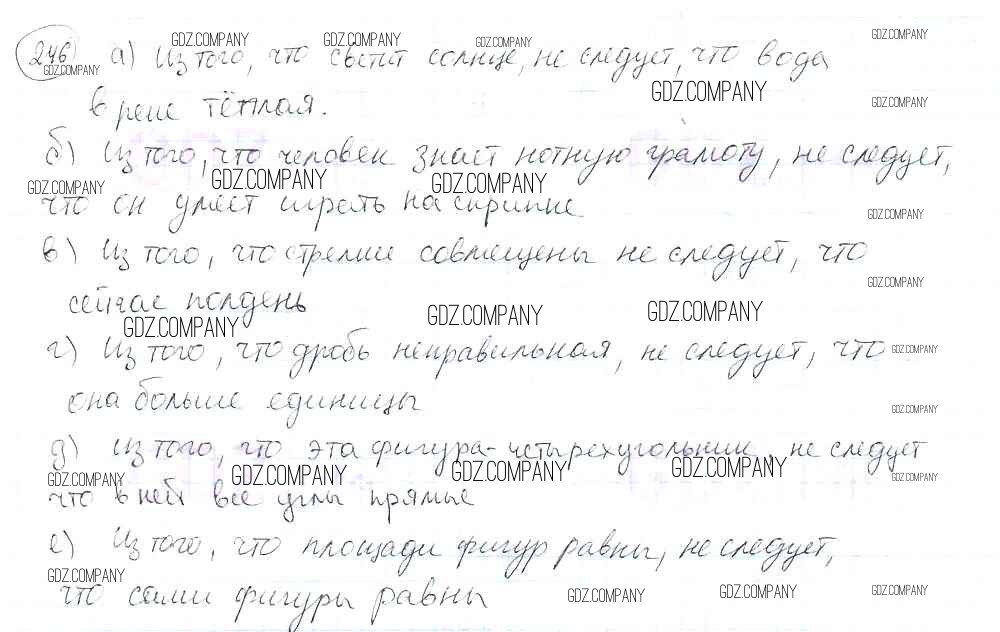 246 а) Из того, что светит солнце, не следует, что вода
в реке тёплая.
б) Из того, что человек знает нотную грамоту, не следует,
что он умеет играть на скрипке
в) Из того, что стрелки совмещены не следует, что
сейчас полдень
г) Из того, что дробь неправильная, не следует, что
она больше единицы
д) Из того, что эта фигура-четырехугольник, не следует
что в ней все углы прямые
е) Из того, что площади фигур равны, не следует,
что сами фигуры равны
GDZ.COMPANY GDZ.COMPANY GDZ.COMPANY GDZ.COMPANY
GDZ.COMPANY GDZ.COMPANY GDZ.COMPANY
GDZ.COMPANY GDZ.COMPANY GDZ.COMPANY
GDZ.COMPANY
GDZ.COMPANY
GDZ.COMPANY GDZ.COMPANY GDZ.COMPANY
GDZ.COMPANY
GDZ.COMPANY
GDZ.COMPANY GDZ.COMPANY GDZ.COMPANY GDZ.COMPANY GDZ.COMPANY
GDZ.COMPANY GDZ.COMPANY GDZ.COMPANY GDZ.COMPANY